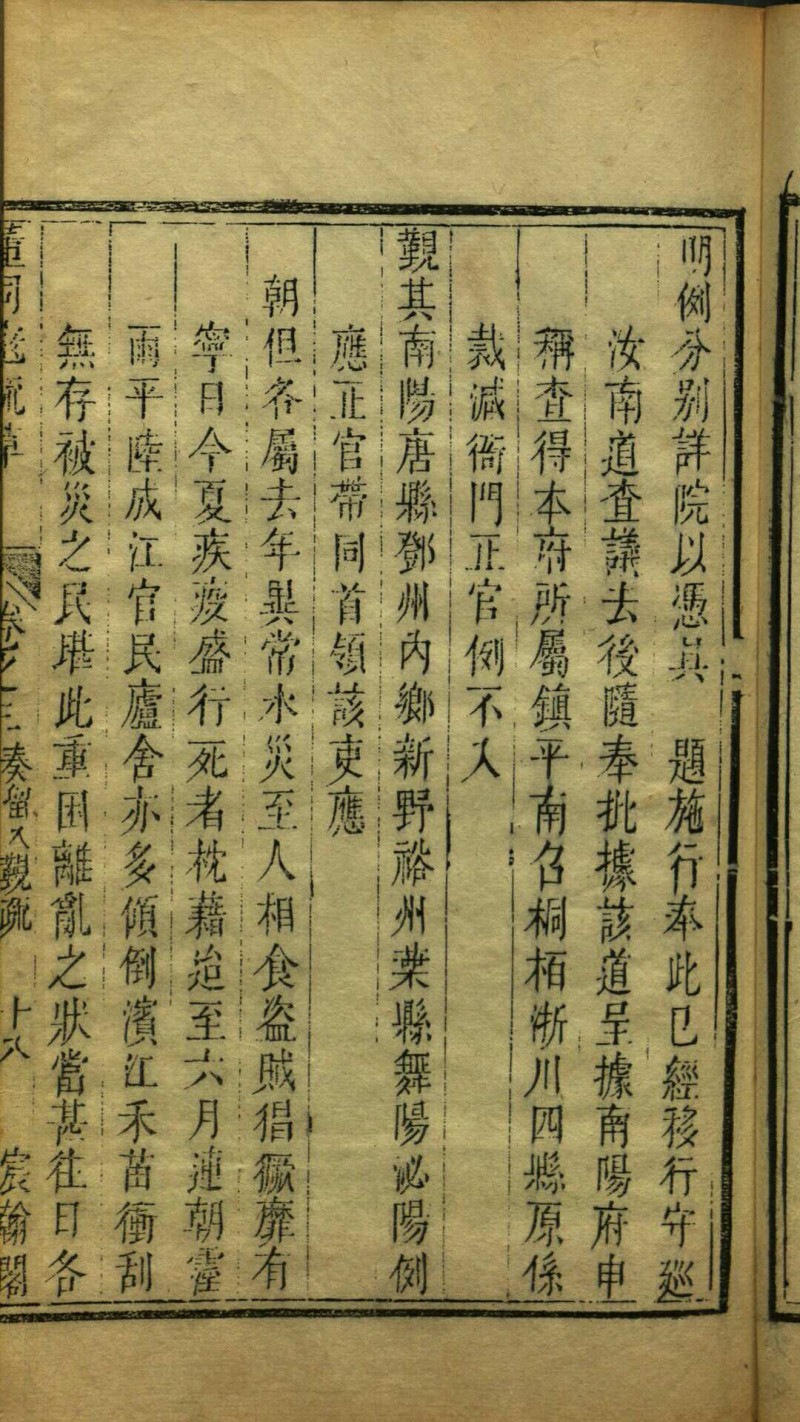 明例分别詳院以憑具　題施行奉此已經移行守廵
汝南道查議去後隨奉批據該道呈據南陽府申
稱查得本府所屬鎮平南召桐栢淅川四縣原係
裁減衙門正官例不入
覲其南陽唐縣鄧州内鄉新野裕州葉縣舞陽泌陽例
應正官帶同首領該吏應
朝但各屬去年異常水災至人相食盗賊猖獗靡有
寧日今夏疾疫盛行死者枕藉迨至六月連朝霪
雨平陸成江官民廬舍亦多傾倒濱江禾苗衝刮
無存被災之民堪此重困離亂之狀當甚往日各
董司疏草 卷之 奏留入覲疏 十八 宸翰閣